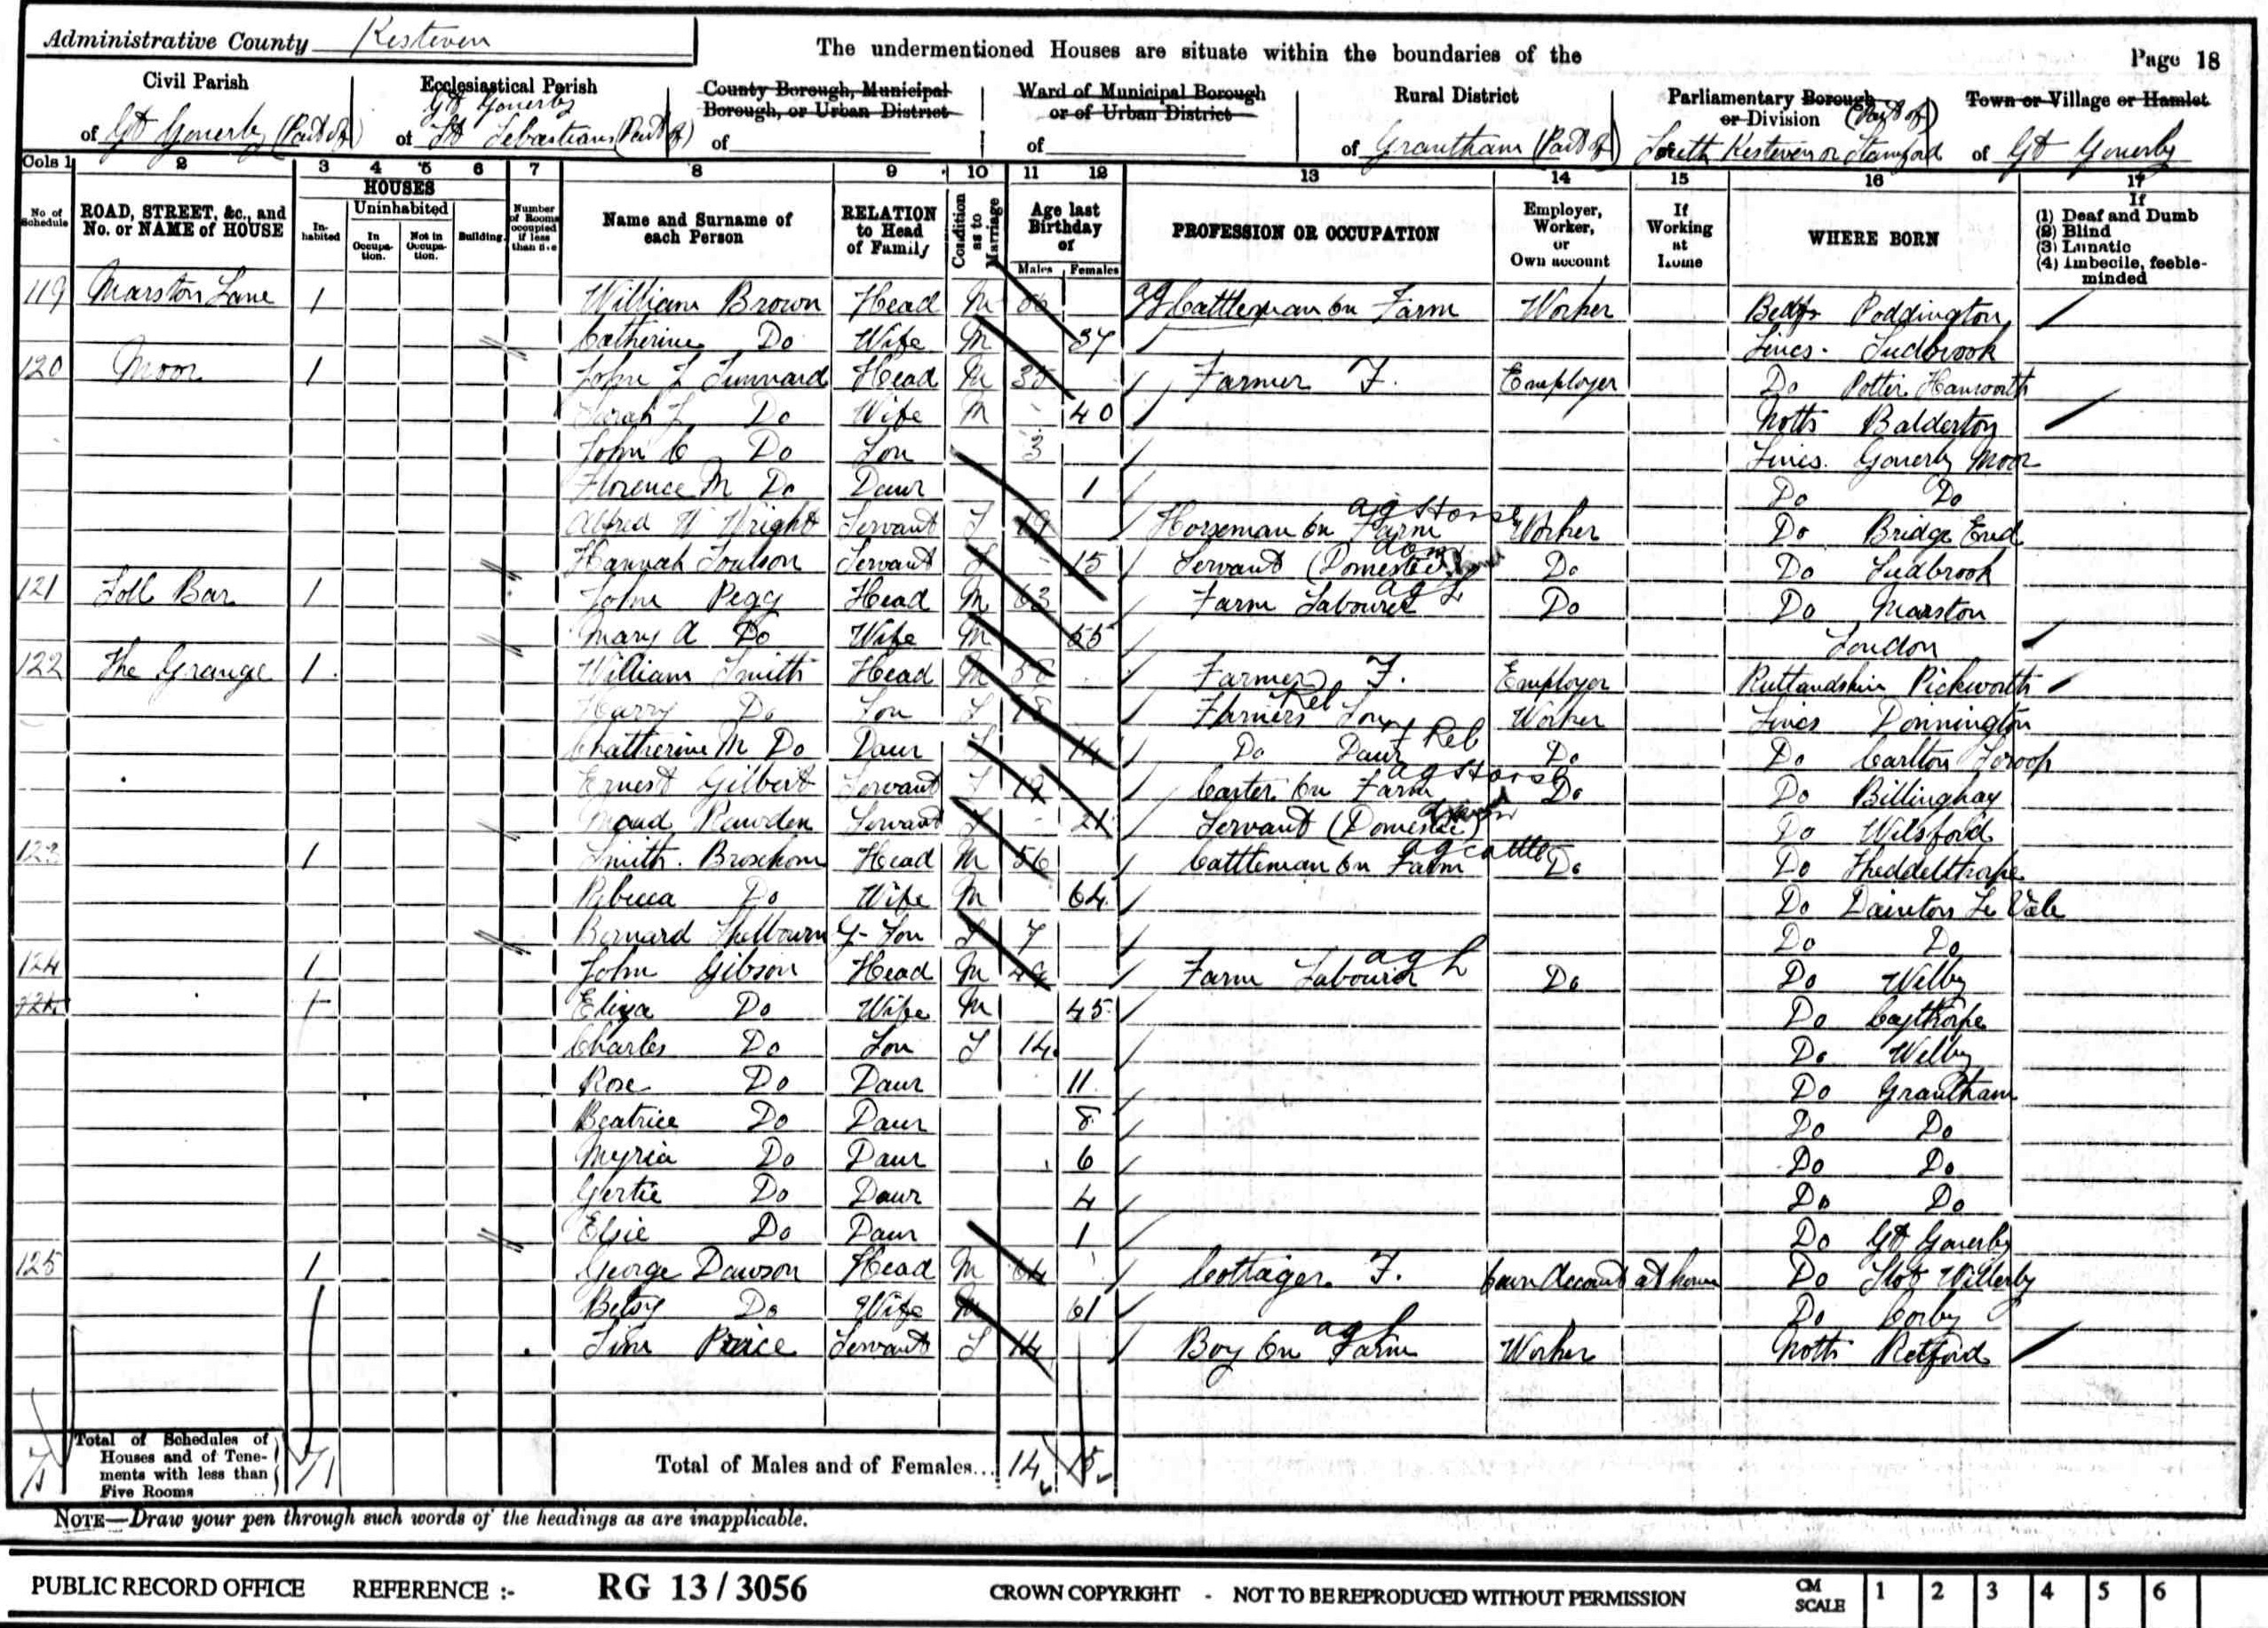 Administrative County Kesteven
The undermentioned Houses are situate within the boundaries of the
Page 18
Civil Parish
of Gt Gonerby (Part of)
Ecclesiastical Parish
Gt Gonerby
of St Sebastians (Part of)
County Borough, Municipal Borough, or Urban District
of
Ward of Municipal Borough or of Urban District
of
Rural District
of Grantham (Part of)
Parliamentary Borough or Division (Part of)
South Kesteven or Stamford
Town or Village or Hamlet
of Gt Gonerby
Cols 1 2 3 4 5 6 7 8 9 10 11 12 13 14 15 16 17
No of Schedule
ROAD, STREET, &c., and No. or NAME of HOUSE
HOUSES
Inhabited
Uninhabited
In Occupation.
Not in Occupation.
Building
Number of Rooms occupied if less than five
Name and Surname of each Person
RELATION to Head of Family
Condition as to Marriage
Age last Birthday of
Males Females
PROFESSION OR OCCUPATION
Employer, Worker, or Own account
If Working at Home
WHERE BORN
If
(1) Deaf and Dumb
(2) Blind
(3) Lunatic
(4) Imbecile, feeble-minded
119 Marston Lane 1 William Brown Head M ag Cattleman on Farm Worker Beds Poddington
Catherine Do Wife M 37 Lincs. Sudbrook
120 Moor 1 John Head M 35 Farmer F. Employer Do Potter Hanworth
Sarah Do Wife M 40 Notts Balderton
John C Do Son 3 Lincs. Gonerby Moor
Florence M Do Daur 1 Do Do
Alfred W Wright Servant S 19 Horseman on Farm ag Horse Worker Do Bridge End
Hannah Soulson Servant S 15 Servant (Domestic) dom Do Do Sudbrook
121 Toll Bar 1 John Pegg Head M 63 Farm Labourer ag L Do Do Marston
Mary A Do Wife M 55 London
122 The Grange 1 William Smith Head M Farmer F. Employer Rutlandshire Pickworth
Harry Do Son S 18 Farmers Son Rel Worker Lincs Donnington
Chatherine M Do Daur S 14 Do Daur Rel Do Do Carlton Scroop
Ernest Gilbert Servant S Carter on Farm ag Horse Do Do Billinghay
Maud Rawden Servant S 21 Servant (Domestic) Do Wilsford
123 1 Smith Head M 56 Cattleman on Farm ag cattle Do Do Theddelthorpe
Rebecca Do Wife M 64 Do Dainton Le Vale
Bernard Shelbourn G-Son S 7 Do Do
124 1 John Gibson Head M 49 Farm Labourer ag L Do Do Welby
124 1 Eliza Do Wife M 45 Do Caythorpe
Charles Do Son S 14 Do Welby
Rose Do Daur 11 Do Grantham
Beatrice Do Daur 8 Do Do
Myria Do Daur 6 Do Do
Gertie Do Daur 4 Do Do
Elsie Do Daur 1 Do Gt Gonerby
125 1 George Dawson Head M 64 Cottager F. Own Account at home Do
Betsy Do Wife M 61 Do Corby
Price Servant S 14 Boy on Farm ag L Worker Notts Retford
7 Total of Schedules of Houses and of Tenements with less than Five Rooms 7
Total of Males and of Females... 14 15
NOTE—Draw your pen through such words of the headings as are inapplicable.
PUBLIC RECORD OFFICE REFERENCE :- RG 13 / 3056 CROWN COPYRIGHT - NOT TO BE REPRODUCED WITHOUT PERMISSION CM SCALE 1 2 3 4 5 6